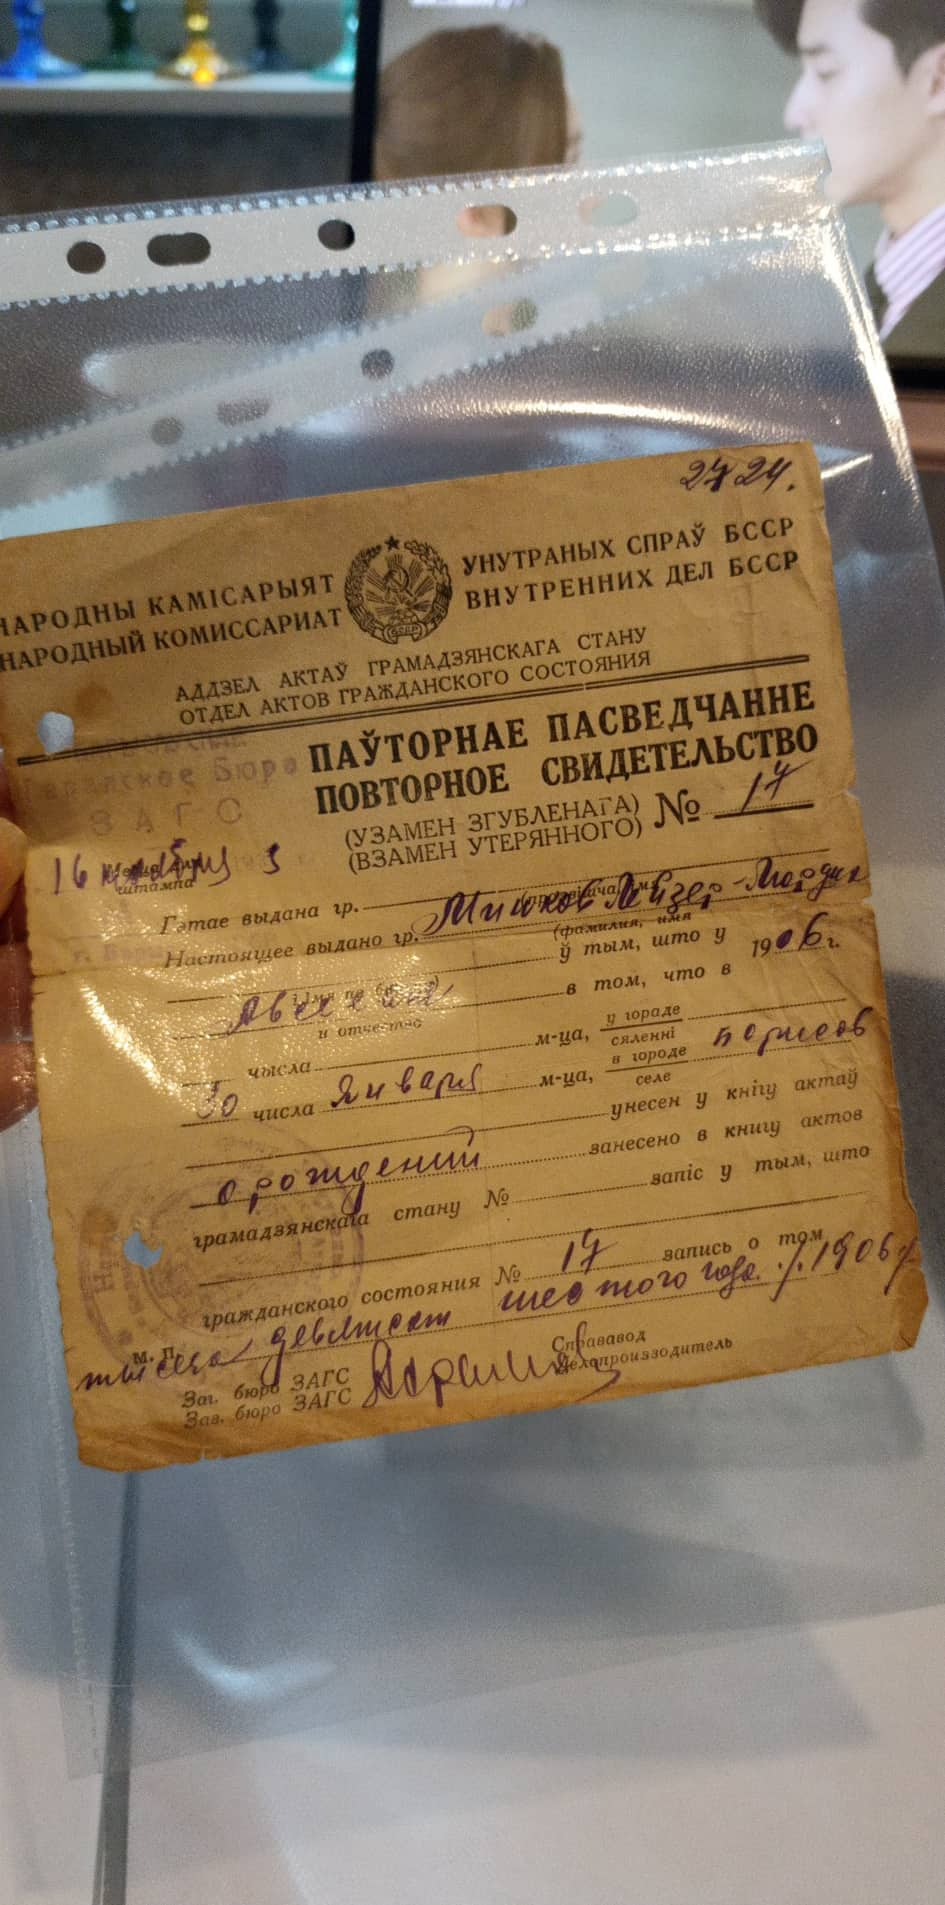 2724.
НАРОДНЫ КАМІСАРЫЯТ УНУТРАНЫХ СПРАЎ БССР
НАРОДНЫЙ КОМИССАРИАТ ВНУТРЕННИХ ДЕЛ БССР
БССР
АДДЗЕЛ АКТАЎ ГРАМАДЗЯНСКАГА СТАНУ
ОТДЕЛ АКТОВ ГРАЖДАНСКОГО СОСТОЯНИЯ
ПАЎТОРНАЕ ПАСВЕДЧАННЕ
ПОВТОРНОЕ СВИДЕТЕЛЬСТВО
Бюро
ЗАГС
(УЗАМЕН ЗГУБЛЕНАГА)
(ВЗАМЕН УТЕРЯННОГО) № 17
16 ноября
штампа
Гэтае выдана гр.
Настоящее выдано гр. Лейзер-Мордух
(фамилия, имя
ў тым, што у 1906 г.
и отчество
в том, что в
чысла м-ца, у горадзе сяленні
30 числа Января м-ца, в городе селе Борисов
унесен у кнігу актаў
о рождений занесено в книгу актов
грамадзянскага стану № запіс у тым, што
гражданского состояния № 17 запись о том
тысяча девятсот шестого года 1906 г
М. П.
Справавод
Делопроизводитель
Заг. бюро ЗАГС
Зав. бюро ЗАГС